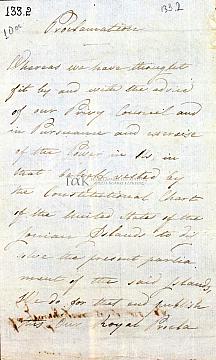 133.2
133.2
10a
Proclamation
Whereas we have thought
fit by and with the advice
of our Privy Council and
in Pursuance and exercise
of the Power in Us in
that behalf vested by
the Constitutional Chart
of the United States of the
Ionian Islands to dis
solve the present parlia
ment of the said Islands
We do for that end publish
this Our Royal Procla